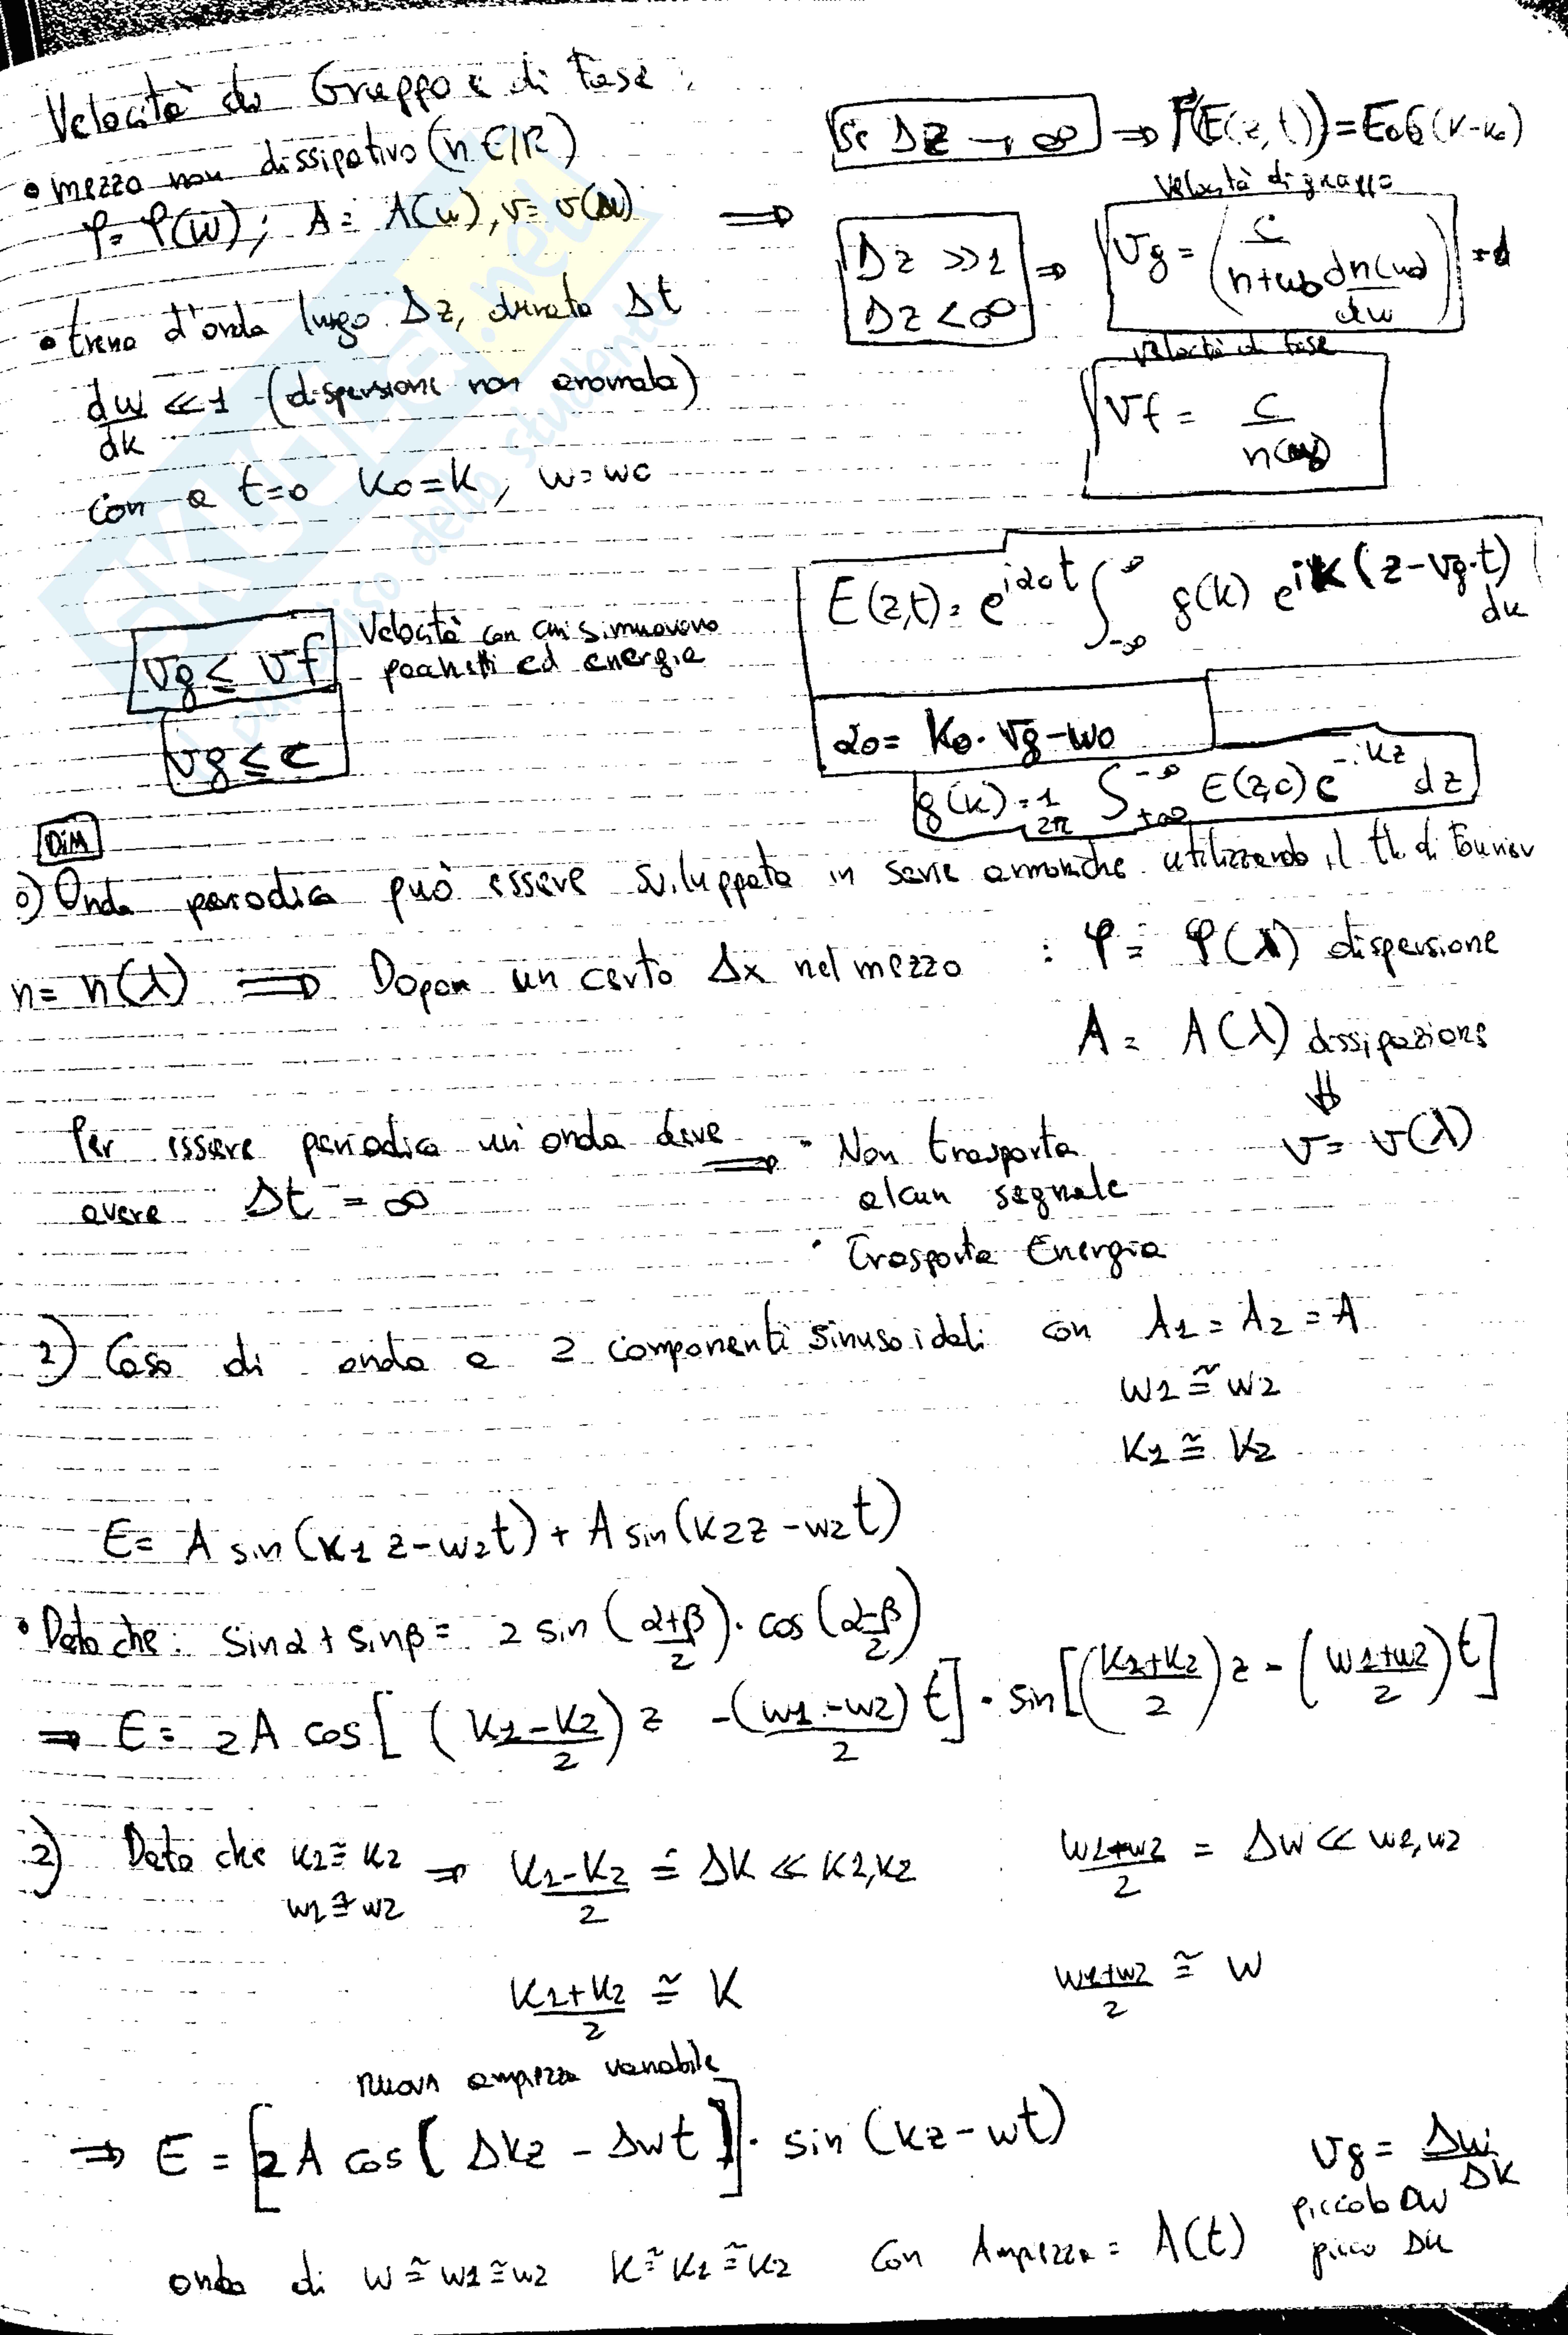 Velocità di Gruppo e di Fase:
• mezzo non dissipativo (n ∈ ℝ)
φ = φ(w); A = A(w), v = v(w) ⇒
• treno d'onda lungo Δz, durata Δt
dw/dk << 1 (dispersione non anomala)
con a t=0 k0=k, w=w0
Se Δz → ∞ ⇒ F(E(z,t)) = E0δ(k-k0)
Δz >> 1
Δz < ∞ ⇒
velocità di gruppo
vg = (c / (n + w0 dn(w0)/dw))
velocità di fase
vf = c / n(w0)
vg ≤ vf
Velocità con cui si muovono
pacchetti ed energia
vg ≤ c
E(z,t) = e^{iα0t} ∫_{-∞}^{∞} g(k) e^{ik(z-vg·t)} dk
α0 = k0·vg - w0
g(k) = 1/2π ∫_{+∞}^{-∞} E(z,0) e^{-ikz} dz
DIM
0) Onda periodica può essere sviluppata in serie armoniche utilizzando il th. di Fourier
n = n(λ) ⇒ Dopo un certo Δx nel mezzo : φ = φ(λ) dispersione
A = A(λ) dissipazione
⇓
v = v(λ)
Per essere periodica un'onda deve
avere Δt = ∞ ⇒
• Non trasporta
alcun segnale
• Trasporta Energia
1) Caso di onda a 2 componenti sinusoidali con A1 = A2 = A
w1 ≅ w2
k1 ≅ k2
E = A sin(k1 z - w2t) + A sin(k2z - w2t)
• Dato che: sinα + sinβ = 2 sin((α+β)/2) · cos((α-β)/2)
⇒ E = 2A cos[((k1-k2)/2) z - ((w1-w2)/2) t] · sin[((k1+k2)/2) z - ((w1+w2)/2) t]
2) Dato che k1 ≅ k2
w1 ≅ w2 ⇒ (k1-k2)/2 = Δk << k1, k2
(w1+w2)/2 = Δw << w1, w2
(k1+k2)/2 ≅ k
(w1+w2)/2 ≅ w
nuova ampiezza variabile
⇒ E = [2A cos[Δkz - Δwt]] · sin(kz - wt)
vg = Δw/Δk
piccolo Δw
picco Δk
onda di w ≅ w1 ≅ w2 k ≅ k1 ≅ k2 con Ampiezza = A(t)
SKUOLA.net
dello studente